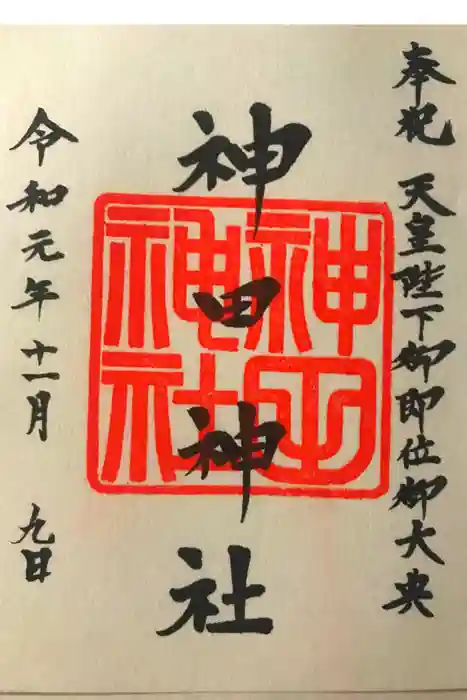 奉祝 天皇陛下御即位御大典
神田神社
神田
神社
令和元年十一月 九日